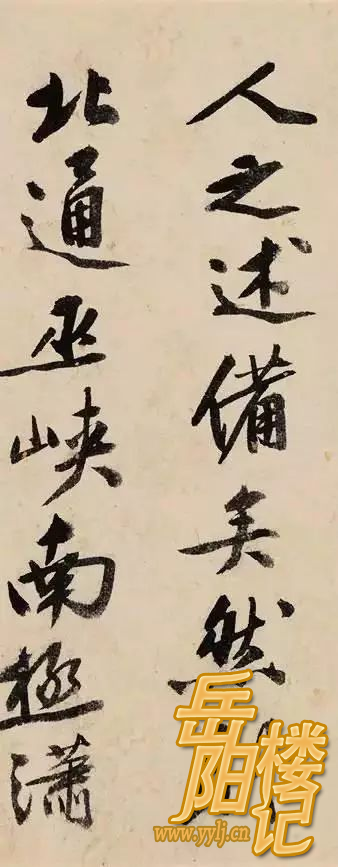 人之述備矣然
北通巫峽南極瀟
岳阳楼记
www.yylj.cn